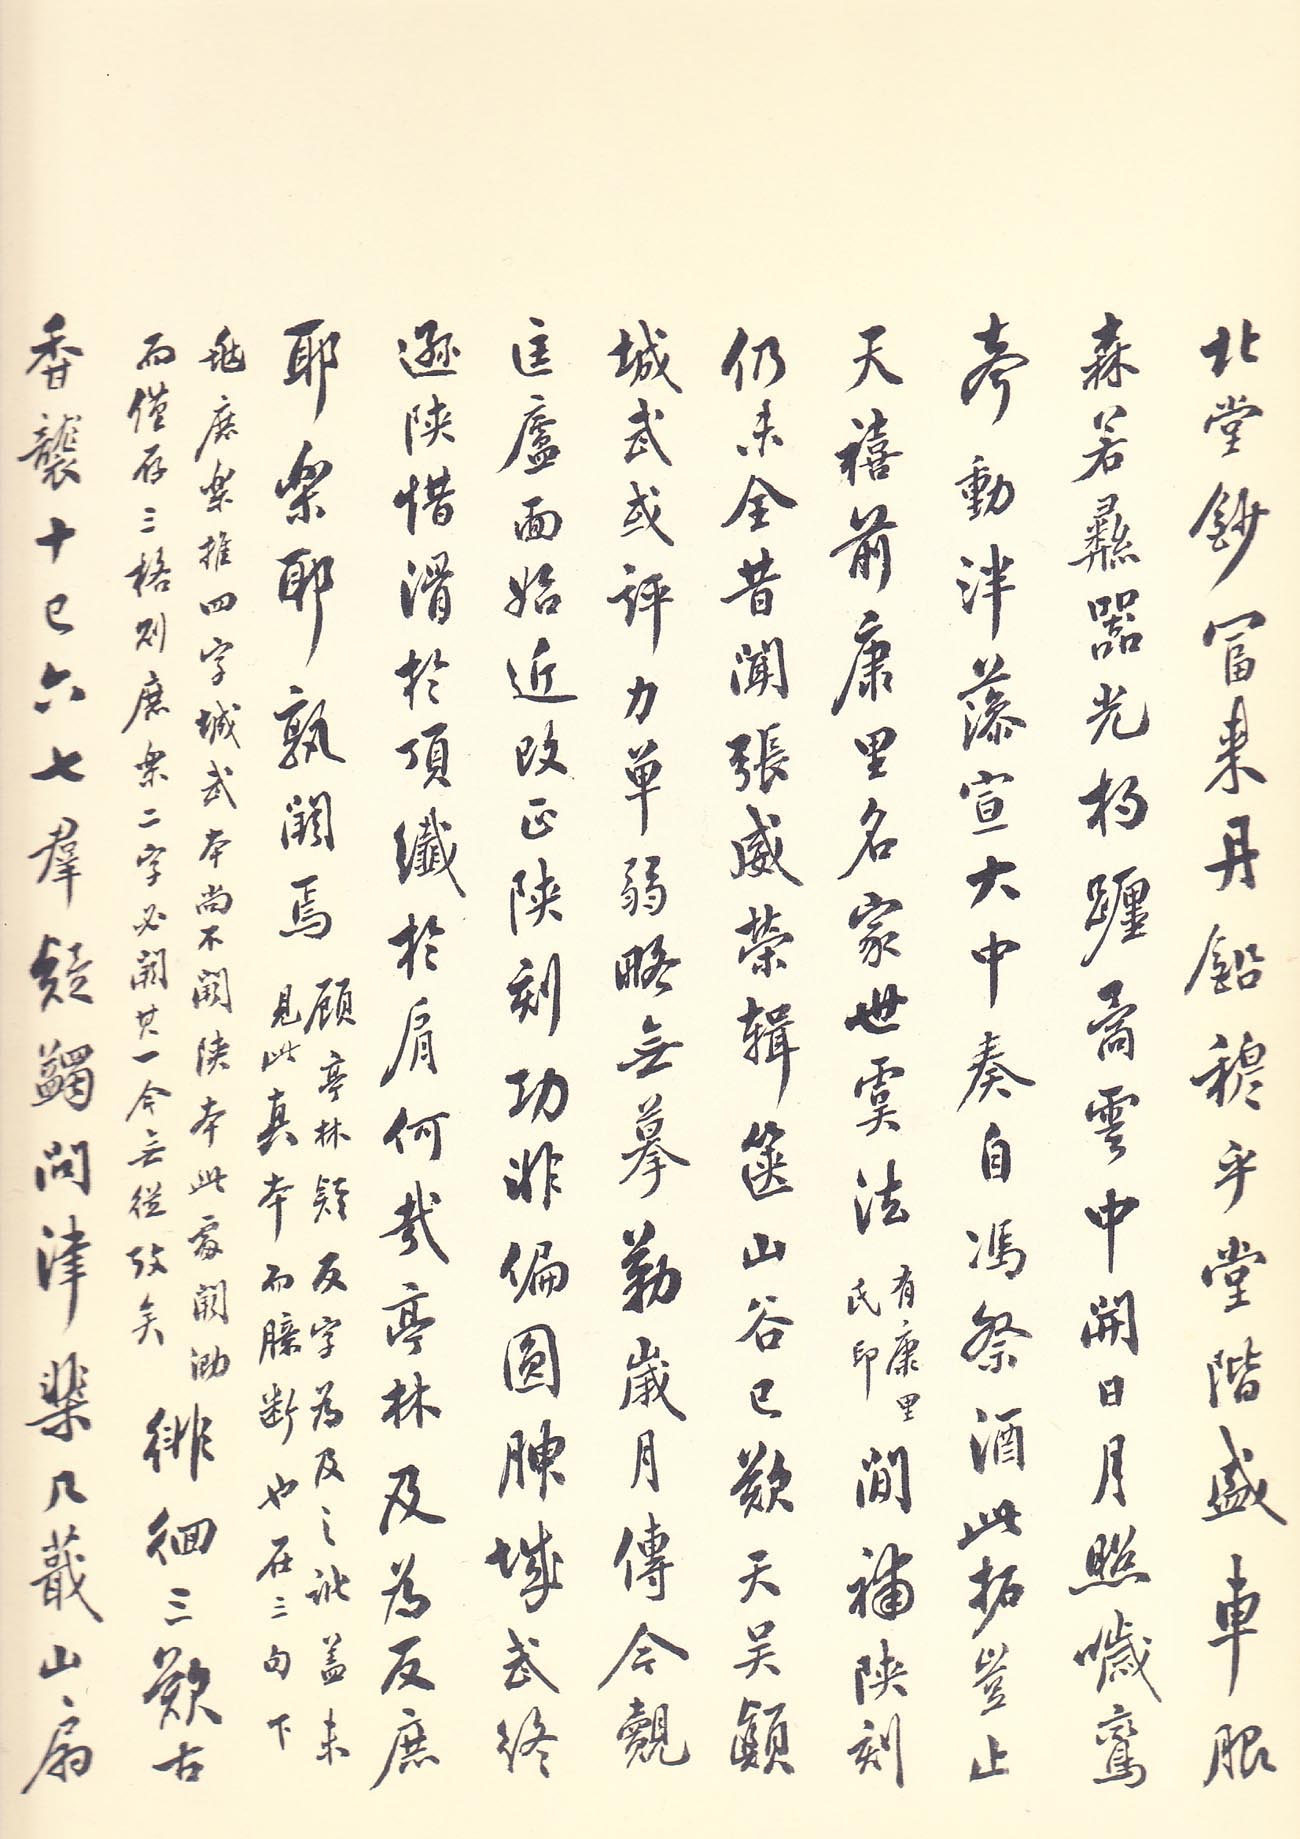 北堂鈔冐来丹鉛穆乎堂階盛車服
森若彝器光杓躔矞雲中開日月照噦鸞
夸動泮藻宣大中奏自馮祭酒此拓豈止
天禧前康里名家世寞法有康里氏印閒補陝刻
仍未全昔聞張威榮輯篋山谷已歎天吴顛
城武或評力單弱略無摹勒歲月傳今覿
匡廬面始近改正陝刻功非偏圓腴城武終
遜陝惜滑於頂纖於肩何哉亭林及為反庶
耶樂耶孰闕焉
顧亭林疑反字為及之訛盖未
見此真本而臆断也在二句下
庶樂推四字城武本尚不闕陝本此處闕泐
而僅存三格则庶樂二字必闕其一今無從攷矣
徘徊三歎古
香襲十已六七羣疑蠲問津棐几蕺山扇